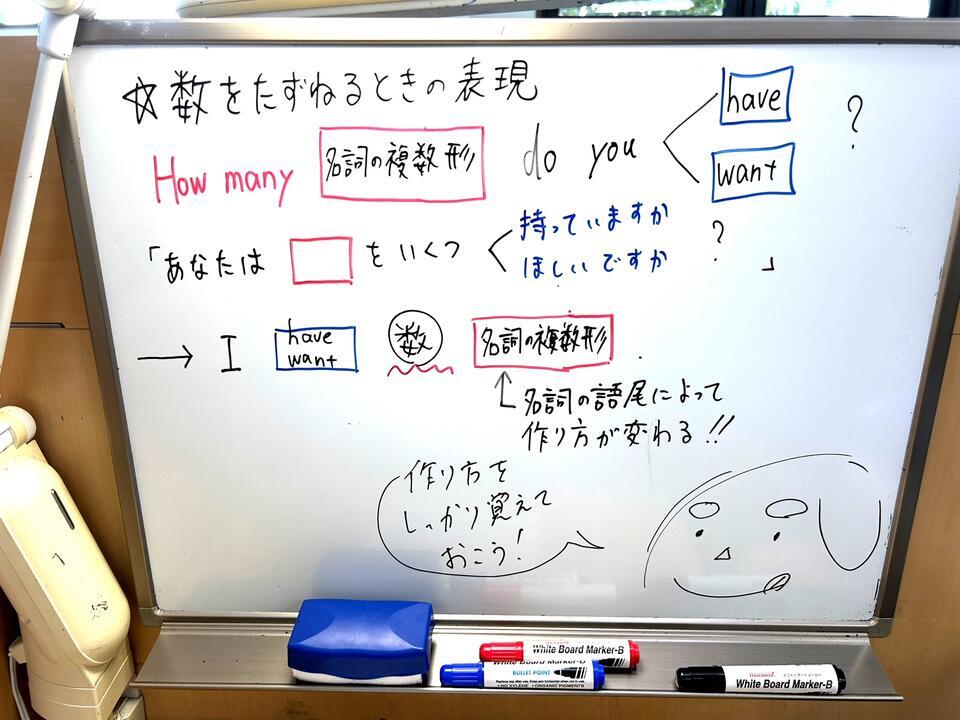 ☆数をたずねるときの表現
How many 名詞の複数形 do you have want ?
「あなたは を いくつ 持っていますか ほしいですか ? 」
→ I have want 数 名詞の複数形 .
名詞の語尾によって
作り方が変わる!!
作り方を
しっかり覚えて
おこう!
White Board Marker-B
White Board Marker-B
BULLET POINT
• NO XYLENE • ORGANIC PIGMENTS
White Board Marker-B